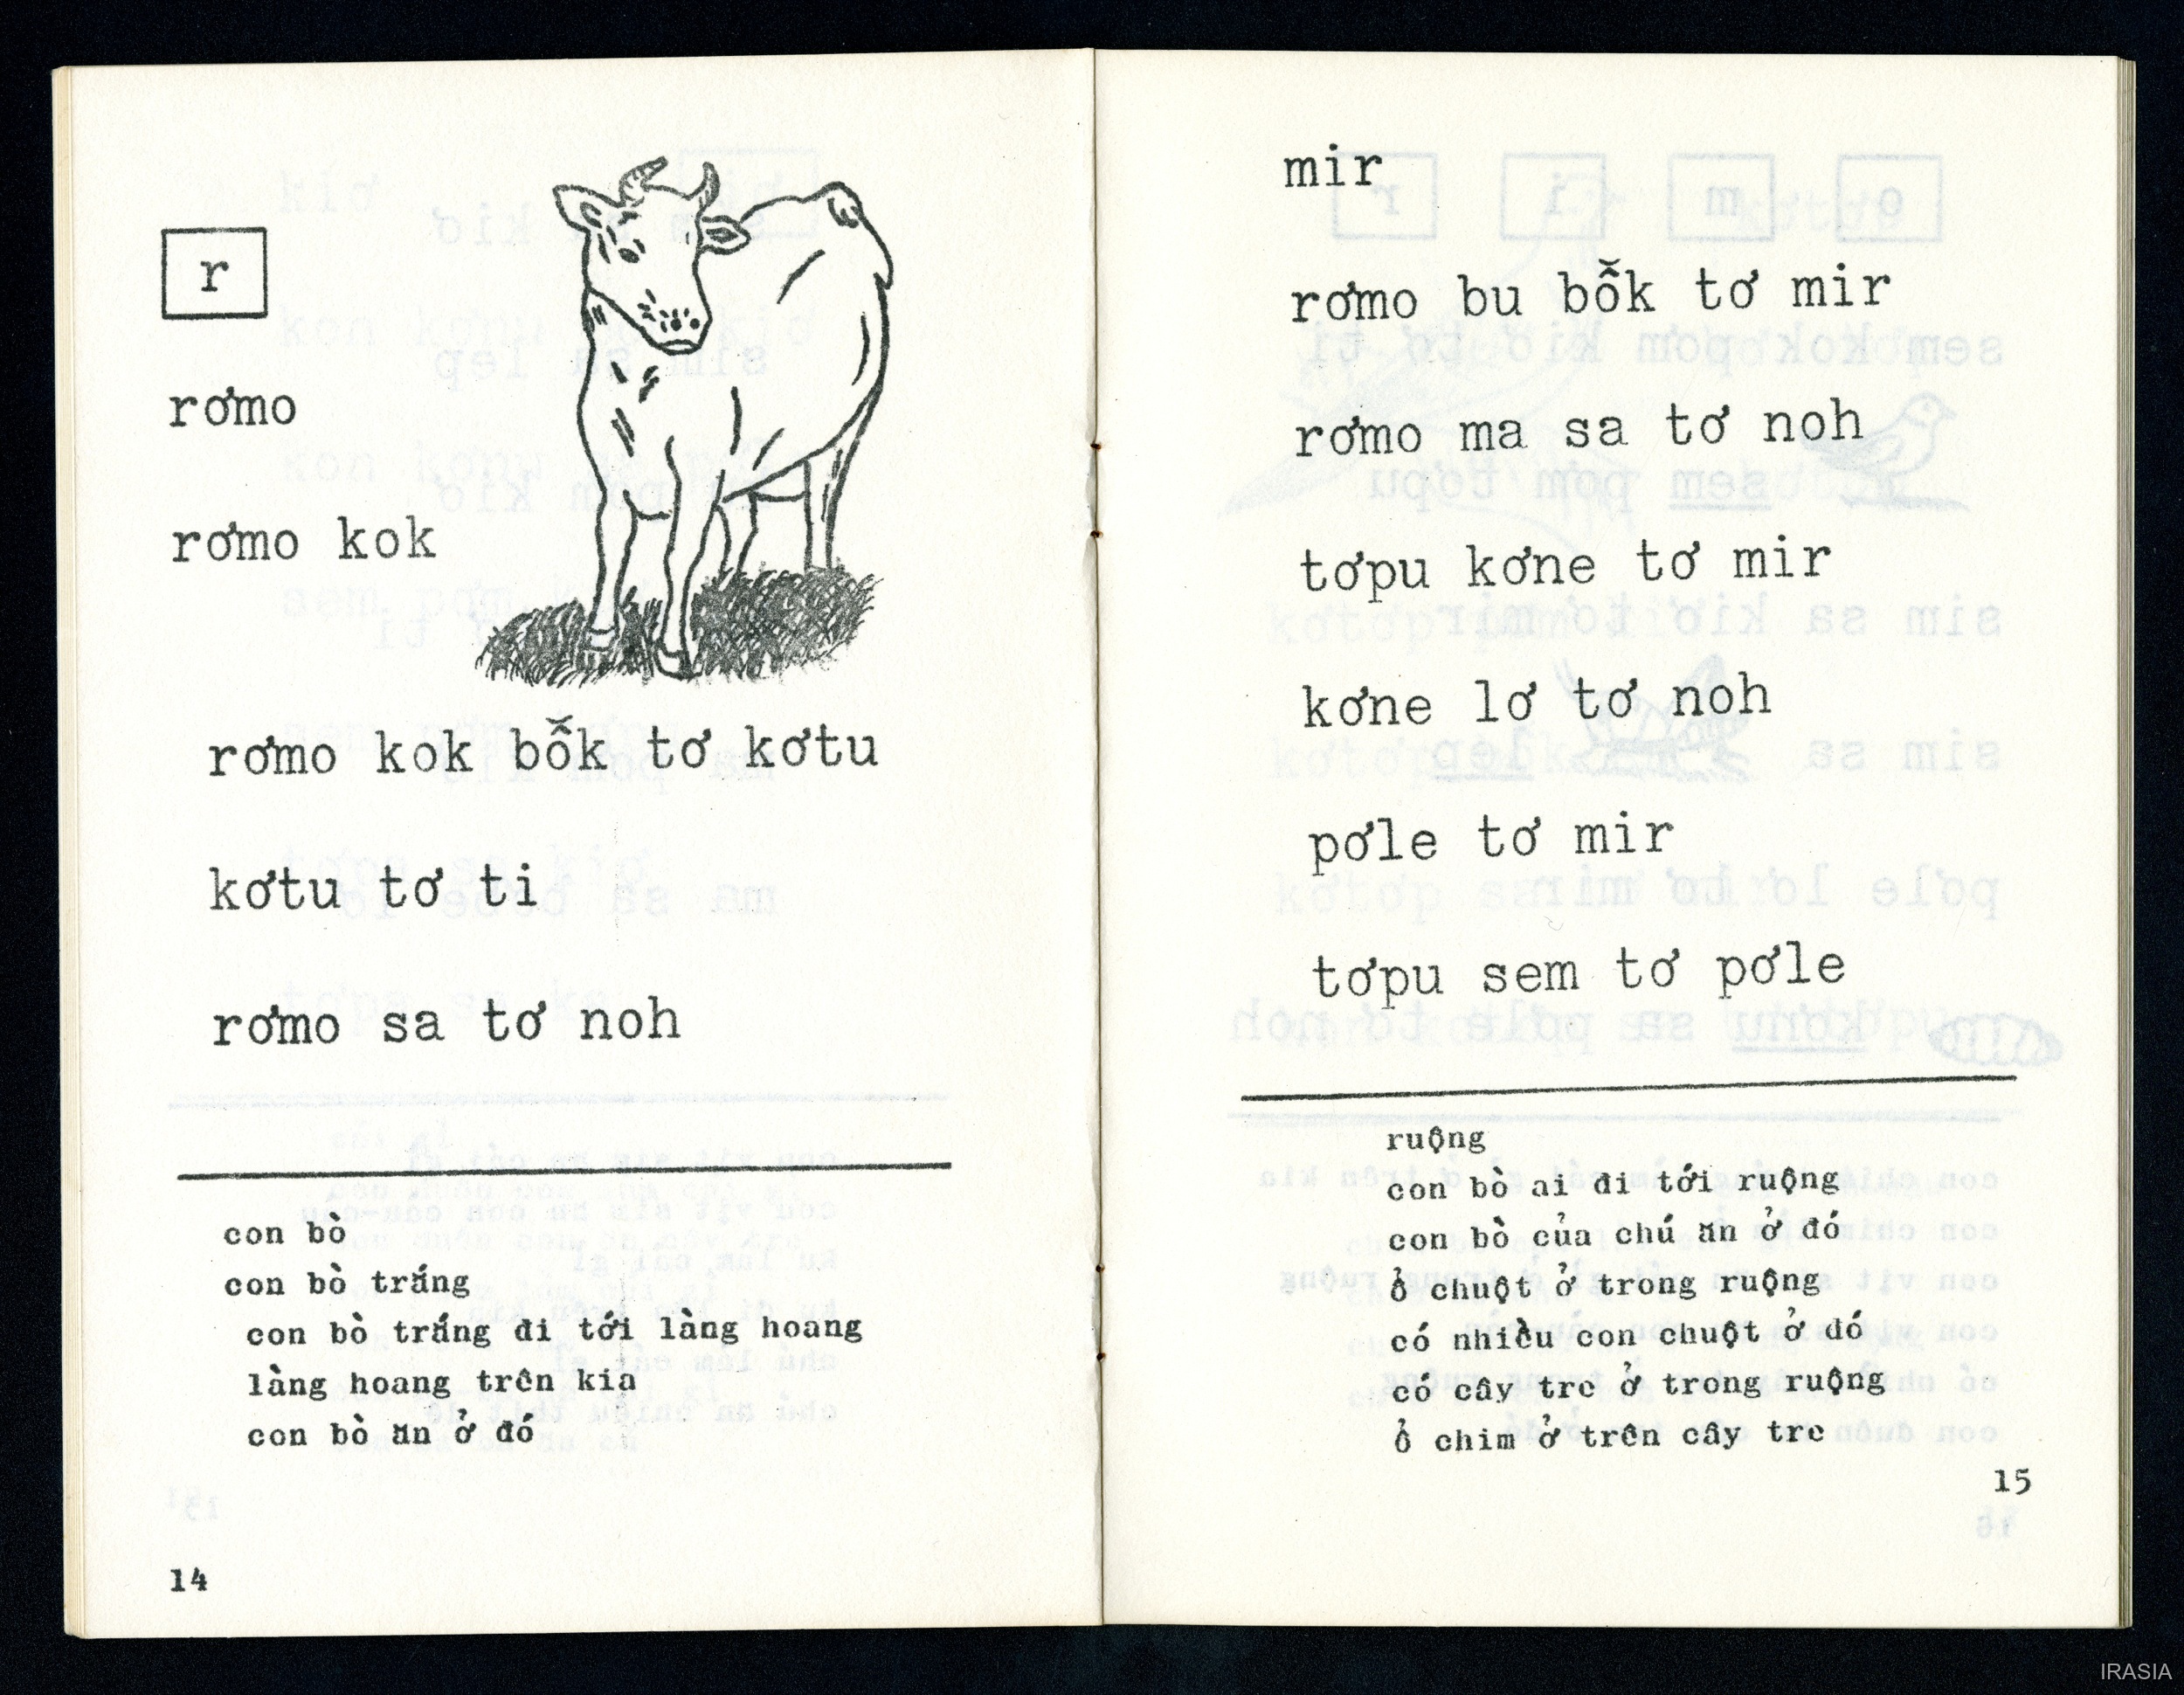 r
rơmo
rơmo kok
rơmo kok bô̆k tơ kơtu
kơtu tơ ti
rơmo sa tơ noh
con bò
con bò trắng
con bò trắng đi tới làng hoang
làng hoang trên kia
con bò ăn ở đó
14
mir
rơmo bu bô̆k tơ mir
rơmo ma sa tơ noh
tơpu kơne tơ mir
kơne lơ tơ noh
pơle tơ mir
tơpu sem tơ pơle
ruộng
con bò ai đi tới ruộng
con bò của chú ăn ở đó
ổ chuột ở trong ruộng
có nhiều con chuột ở đó
có cây tre ở trong ruộng
ổ chim ở trên cây tre
15
IRASIA